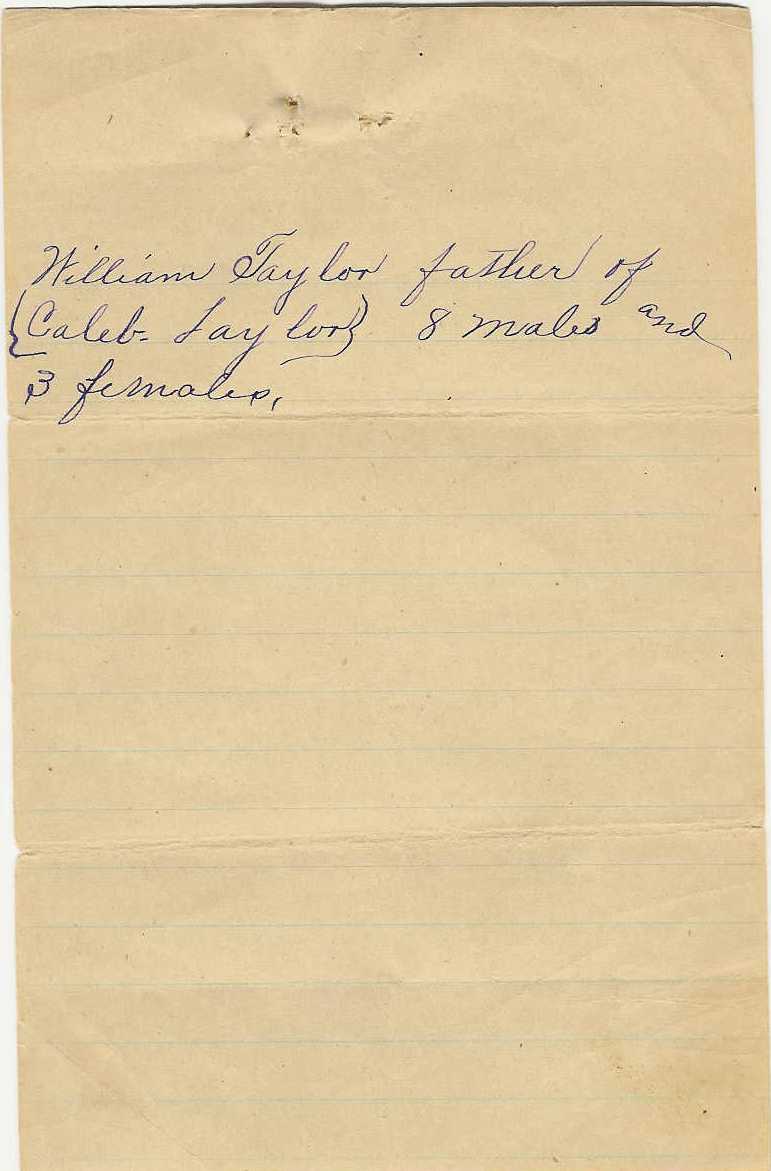 William Taylor father of
{Caleb. Taylor} 8 males and
3 females,